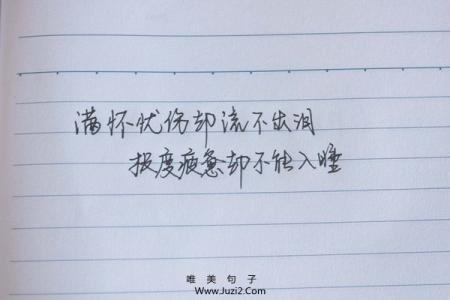 满怀忧伤却流不出泪
极度疲惫却不能入睡
唯美句子
Www.Juzi2.Com